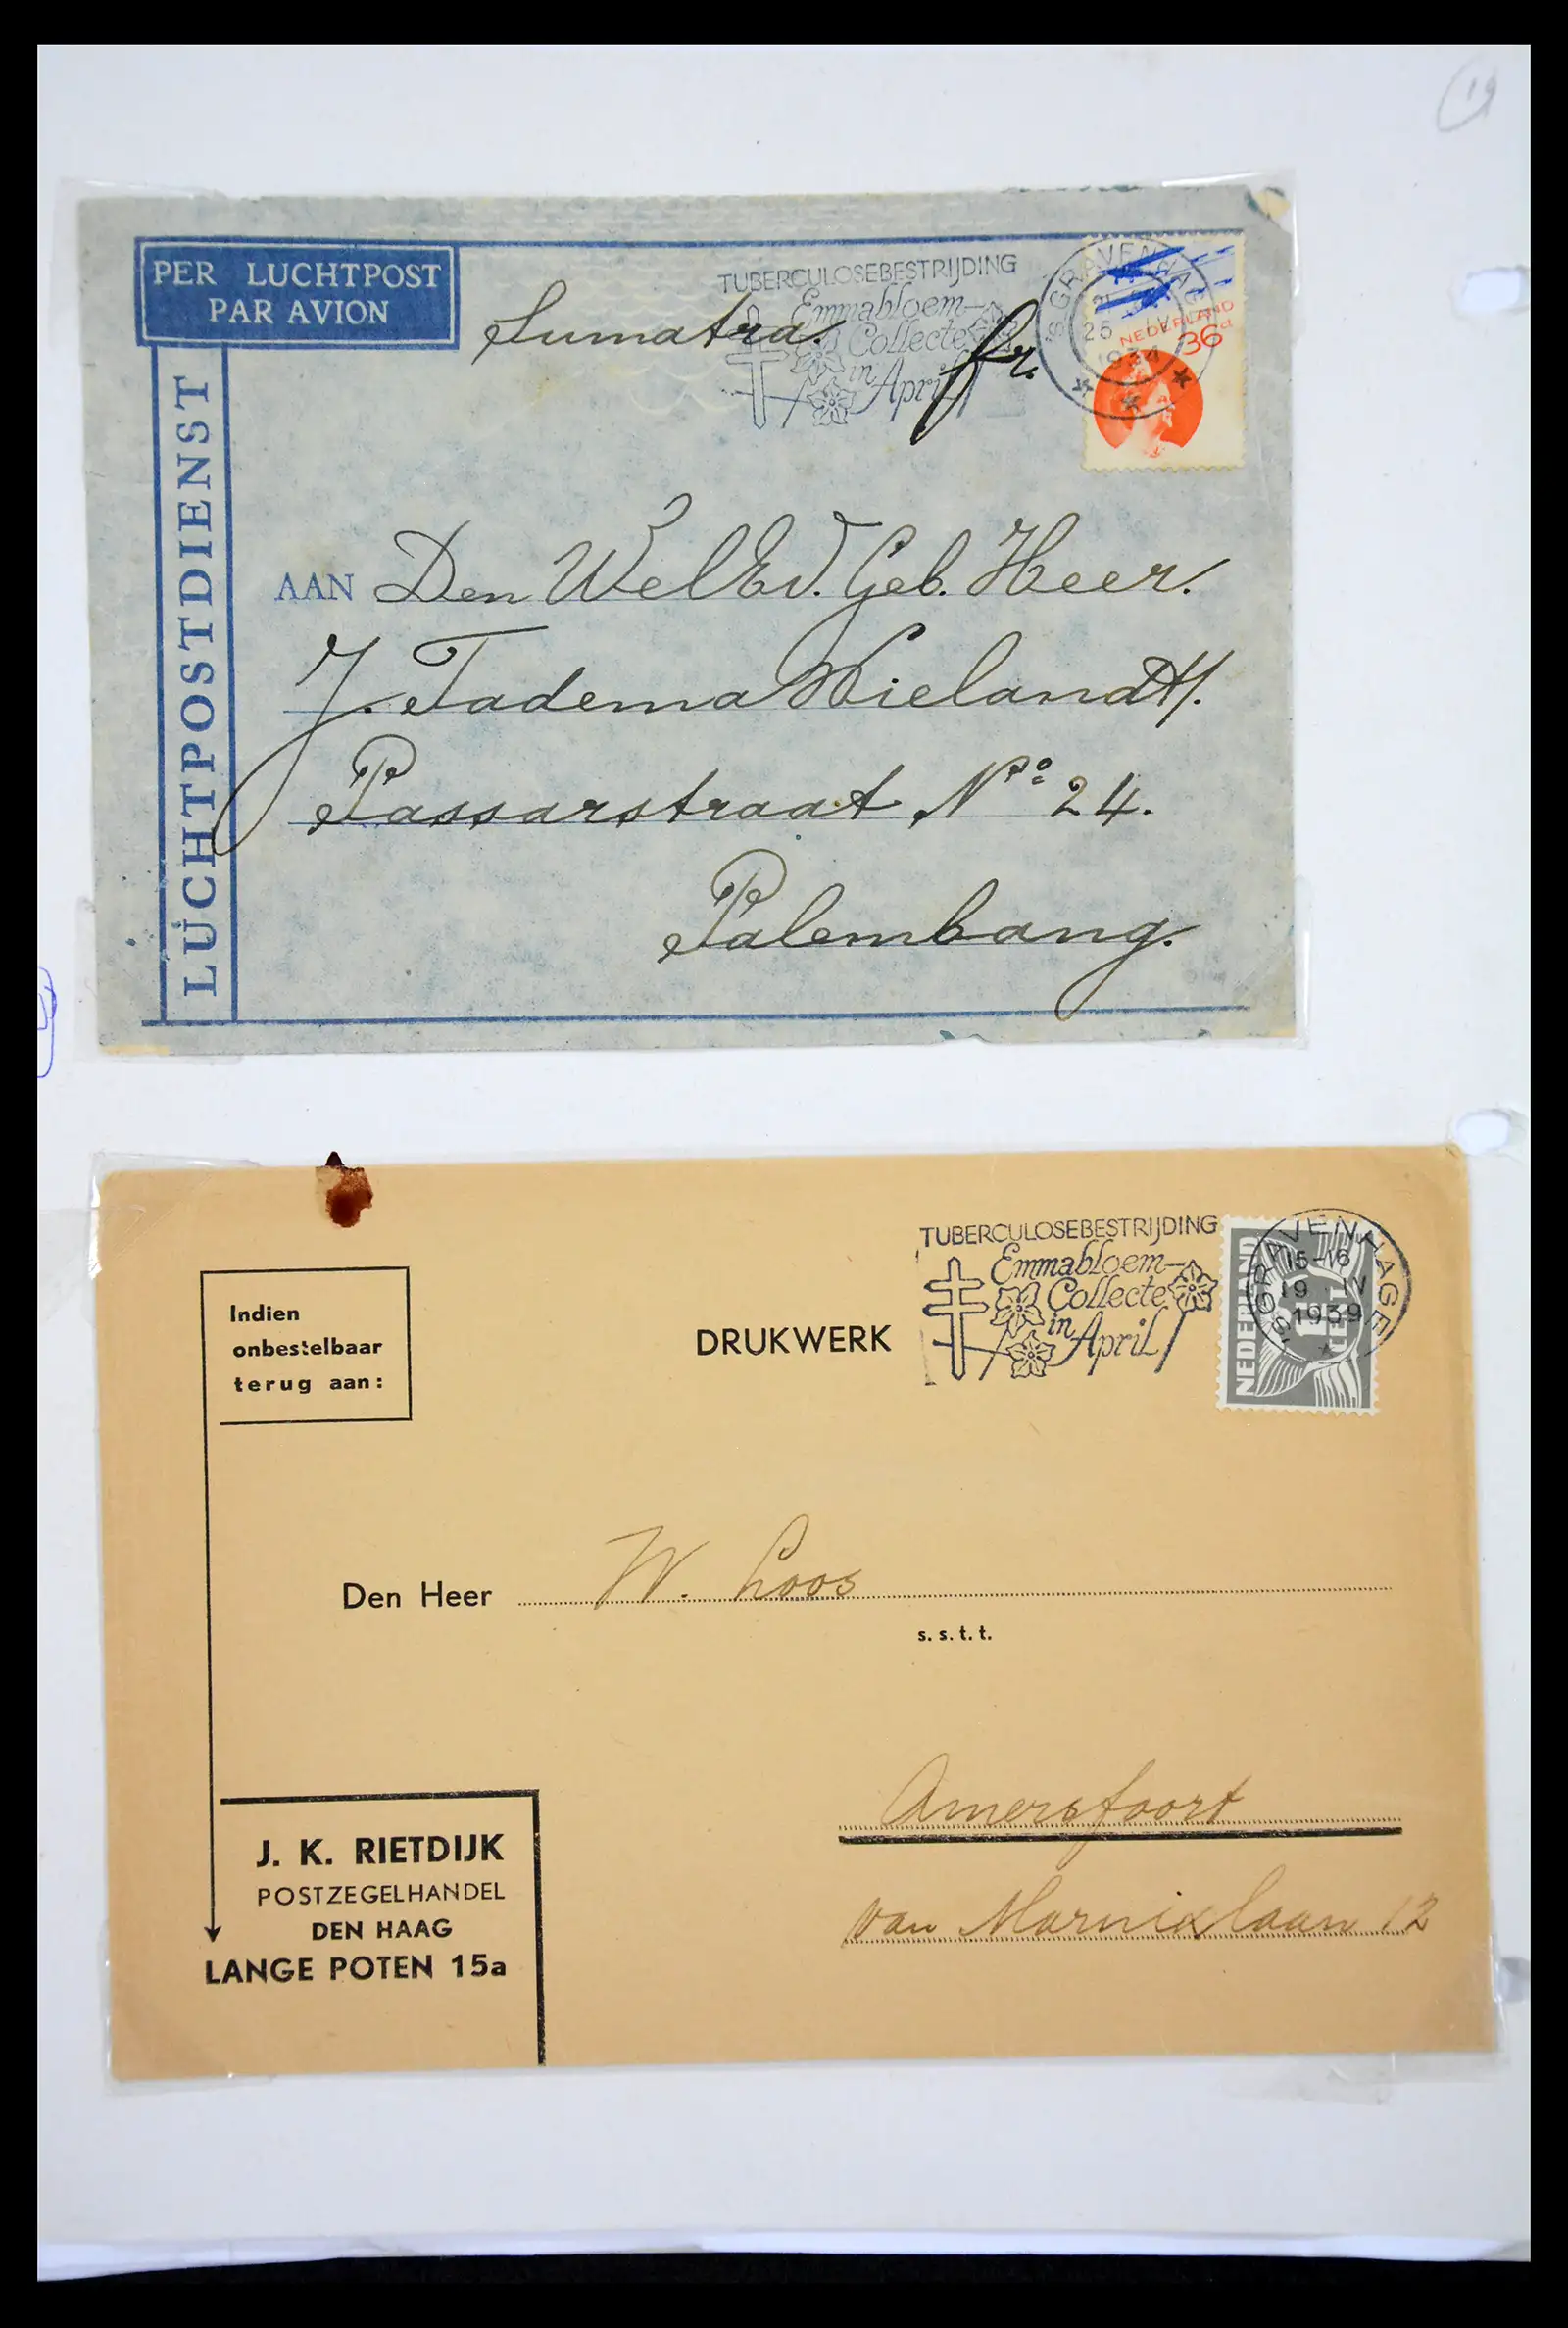 19
PER LUCHTPOST
PAR AVION
LUCHTPOSTDIENST
Sumatra.
fr.
TUBERCULOSEBESTRIJDING
Emmabloem-
Collecte
in
April
'S GRAVENHAGE
25 IV
1934
NEDERLAND
36 ct
AAN Den WelEd. Geb. Heer.
J. Tadema Wielandt.
Passarstraat No. 24.
Palembang.
TUBERCULOSEBESTRIJDING
Emmabloem-
Collecte
in
April
'S GRAVENHAGE
15-16
19 IV
1939
NEDERLAND
CENT
Indien
onbestelbaar
terug aan:
DRUKWERK
Den Heer W. Loos
s. s. t. t.
Amersfoort
van Marnixlaan 12
J. K. RIETDIJK
POSTZEGELHANDEL
DEN HAAG
LANGE POTEN 15a